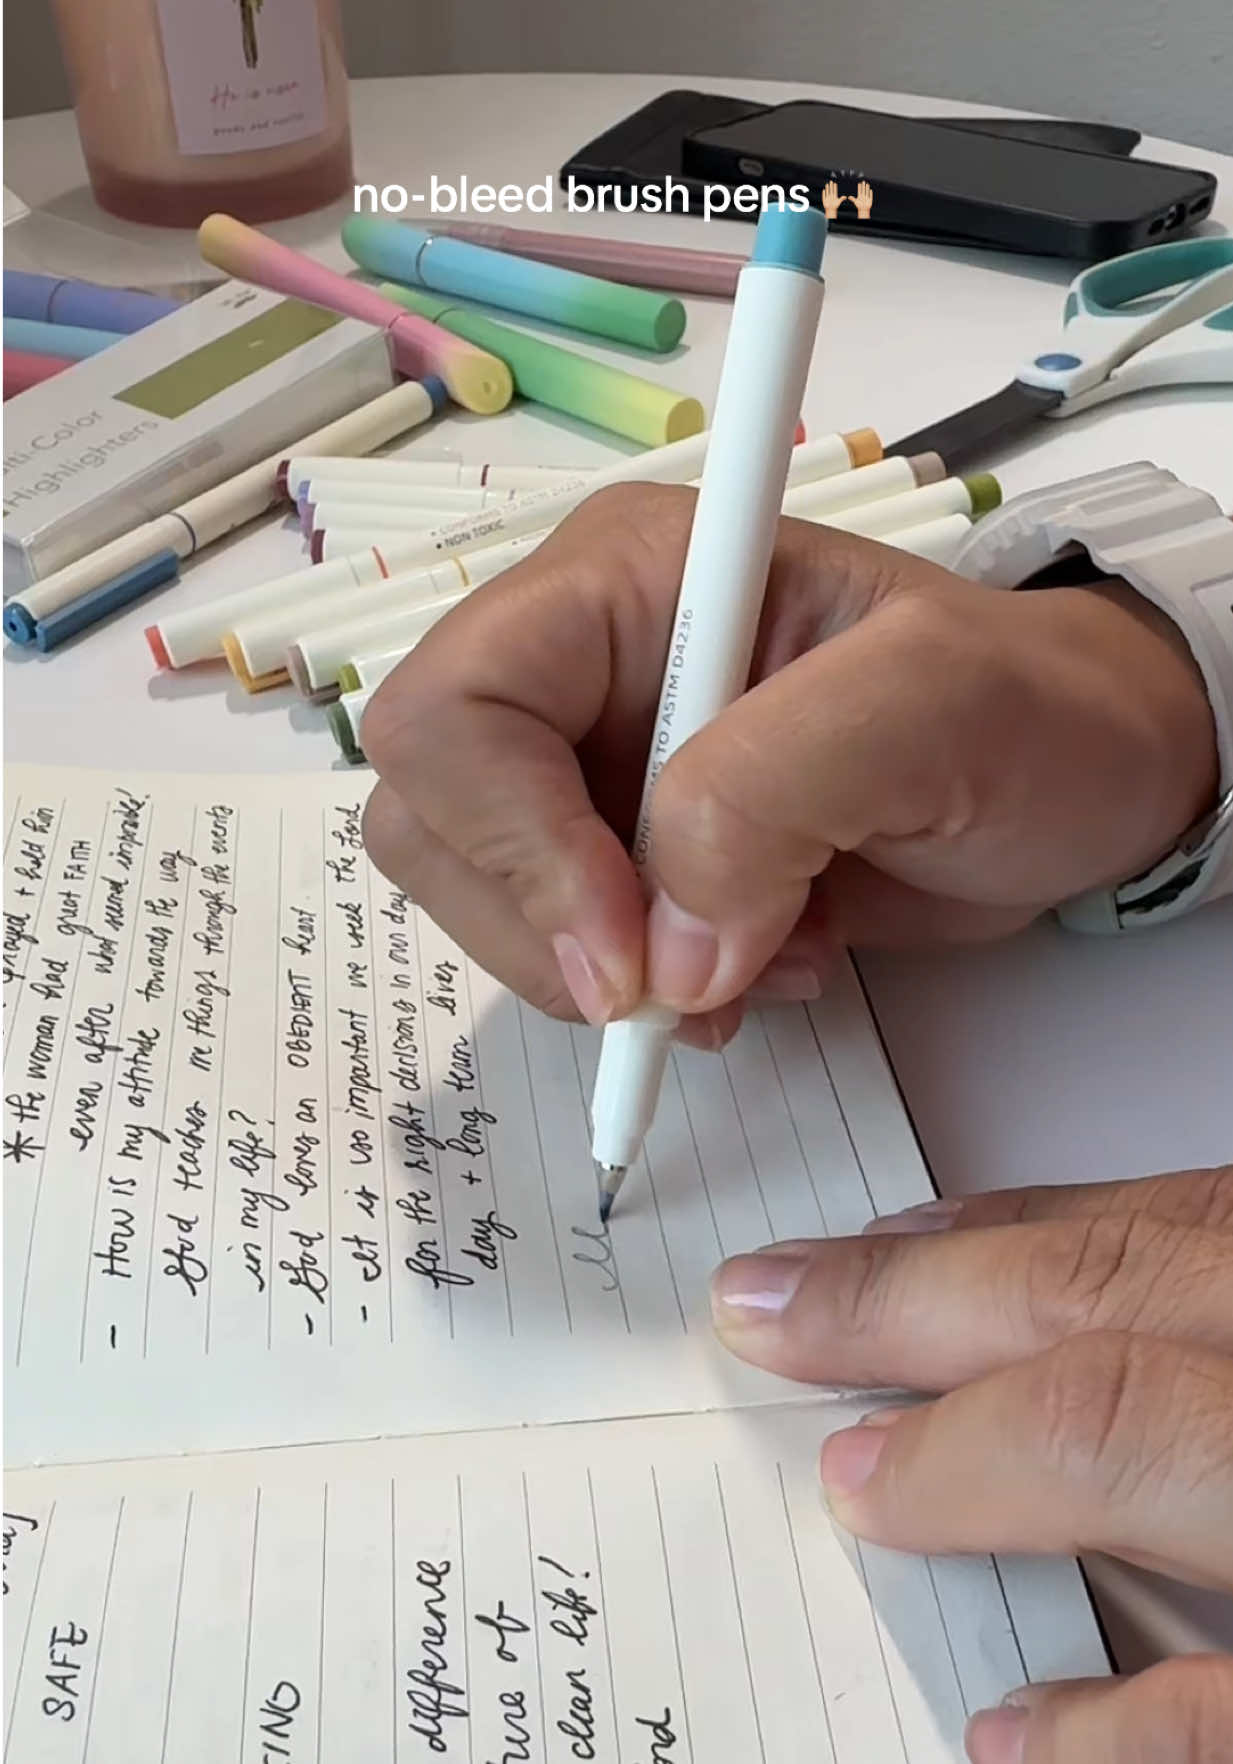 He is risen
no-bleed brush pens 🙌🏼
Multi-Color
Highlighters
• CONFORMS TO ASTM D4236
• NON TOXIC
CONFORMS TO ASTM D4236
prayed + held him
* the woman had great FAITH
even after what seemed impossible!
- How is my attitude towards the way
God teaches me things through the events
in my life?
- God loves an OBEDIENT heart.
- It is so important we seek the Lord
for the right decisions in our day
day + long term lives
SAFE
difference
clean life!